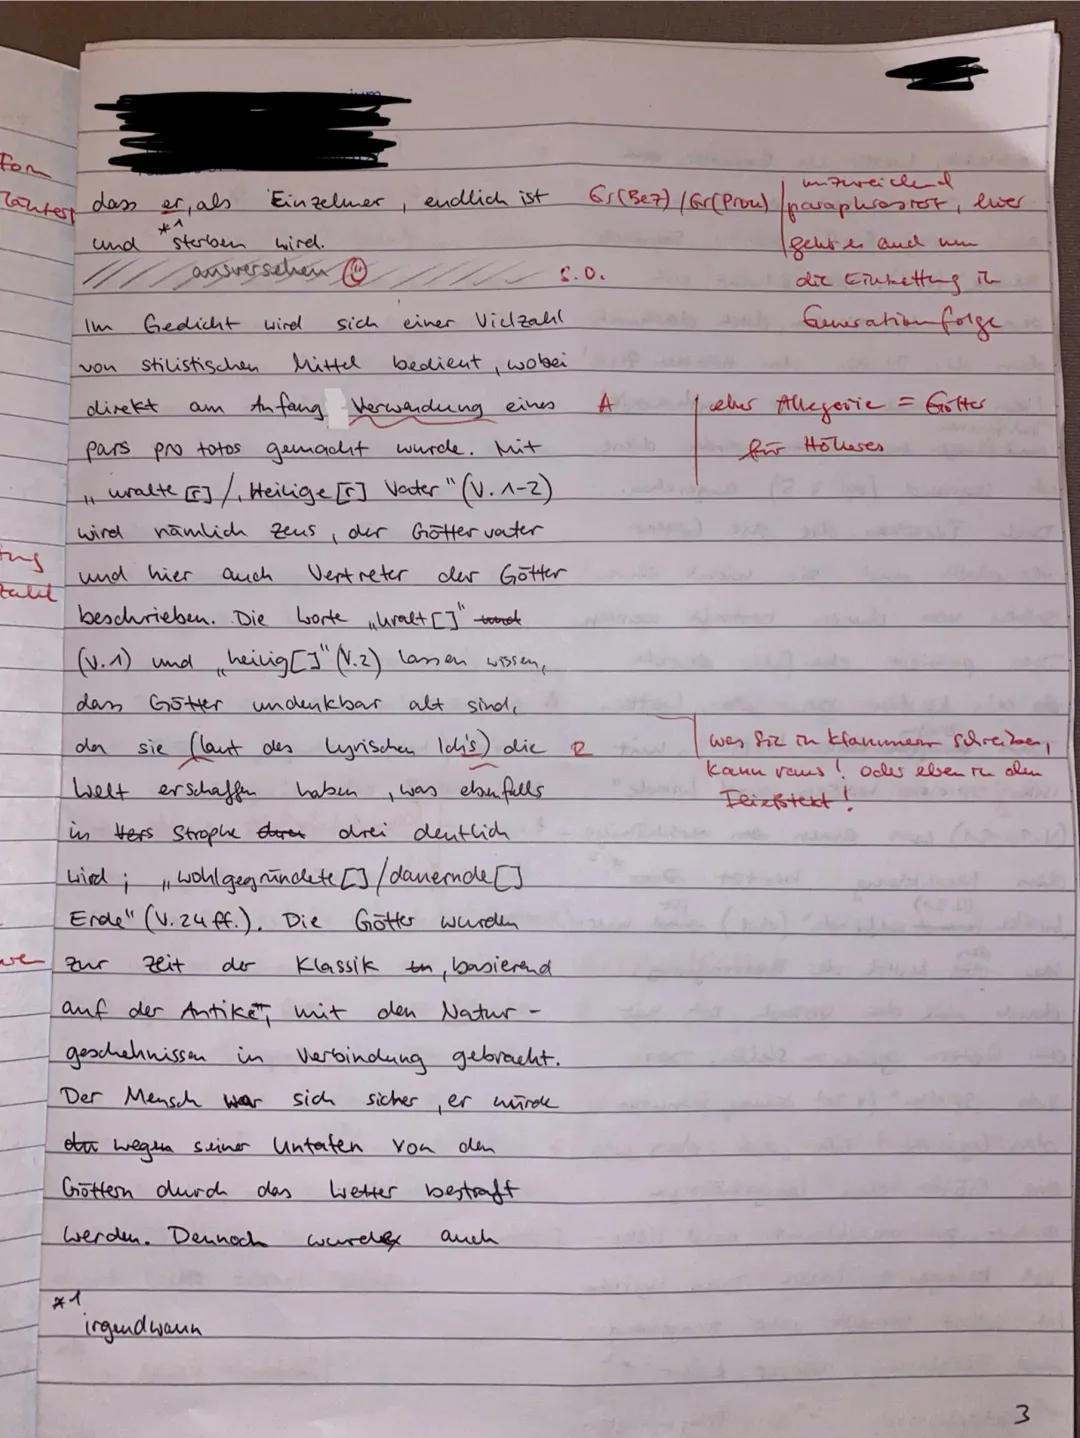 dass er, als Einzelner, endlich ist Gr(Bez) /Gr(Pron) unzureichend
paraphrasiert, hier
und *1 sterben wird. geht es auch um
ausversehen s.o. die Einbettung in
Generationfolge
Im Gedicht wird sich einer Vielzahl
von stilistischen Mittel bedient, wobei
direkt am Anfang Verwendung eines A eher Allegorie = Götter
für Höheres
pars pro totos gemacht wurde. Mit
„uralte[r]/, Heilige[r] Vater" (V. 1-2)
wird nämlich Zeus, der Göttervater
und hier auch Vertreter der Götter
beschrieben. Die Worte „uralt[]"
(V.1) und „heilig[]" (V.2) lassen wissen,
dass Götter undenkbar alt sind,
da sie (laut des lyrischen Ich's) die R was Sie in Klammern schreiben,
kann raus! Oder eben in den
Fließtext!
Welt erschaffen haben, was ebenfalls
in Vers Strophe drei deutlich
wird; „wohlgegründete[]/dauernde[]
Erde" (V. 24 ff.). Die Götter wurden
zur Zeit der Klassik, basierend
auf der Antike, mit den Natur-
geschehnissen in Verbindung gebracht.
Der Mensch war sich sicher, er würde
wegen seiner Untaten von den
Göttern durch das Wetter bestraft
werden. Dennoch wurde auch
*1
irgendwann
3